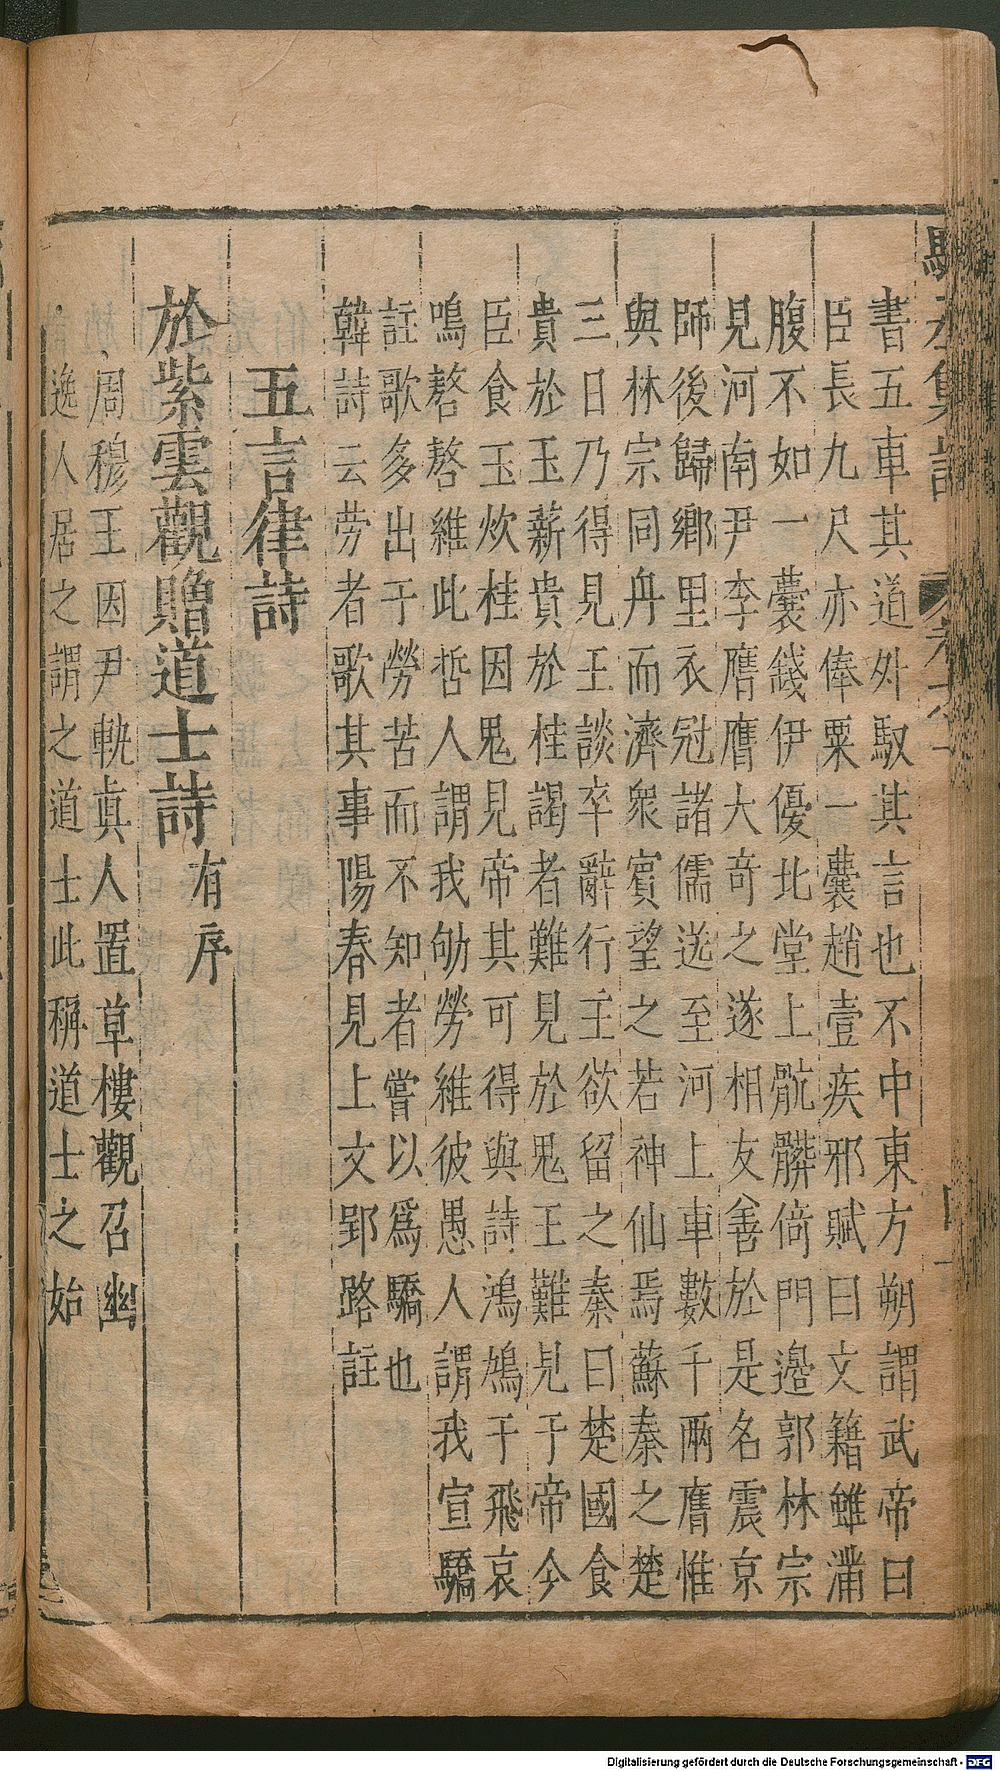 駱丞集註
書五車其道外馭其言也不中東方朔謂武帝曰
臣長九尺亦俸粟一囊趙壹疾邪賦曰文籍雖滿
腹不如一囊錢伊優北堂上骯髒倚門邊郭林宗
見河南尹李膺膺大奇之遂相友善於是名震京
師後歸鄉里衣冠諸儒送至河上車數千兩膺惟
與林宗同舟而濟衆賓望之若神仙焉蘇秦之楚
三日乃得見王談卒辭行王欲留之秦曰楚國食
貴於玉薪貴於桂謁者難見於鬼王難見于帝今
臣食玉炊桂因鬼見帝其可得與詩鴻鳩于飛哀
鳴嗸嗸維此哲人謂我劬勞維彼愚人謂我宣驕
註歌多出于勞苦而不知者嘗以爲驕也
韓詩云勞者歌其事陽春見上文郢路註
五言律詩
於紫雲觀贈道士詩有序
周穆王因尹軌真人置草樓觀召幽
逸人居之謂之道士此稱道士之始
Digitalisierung gefördert durch die Deutsche Forschungsgemeinschaft - DFG